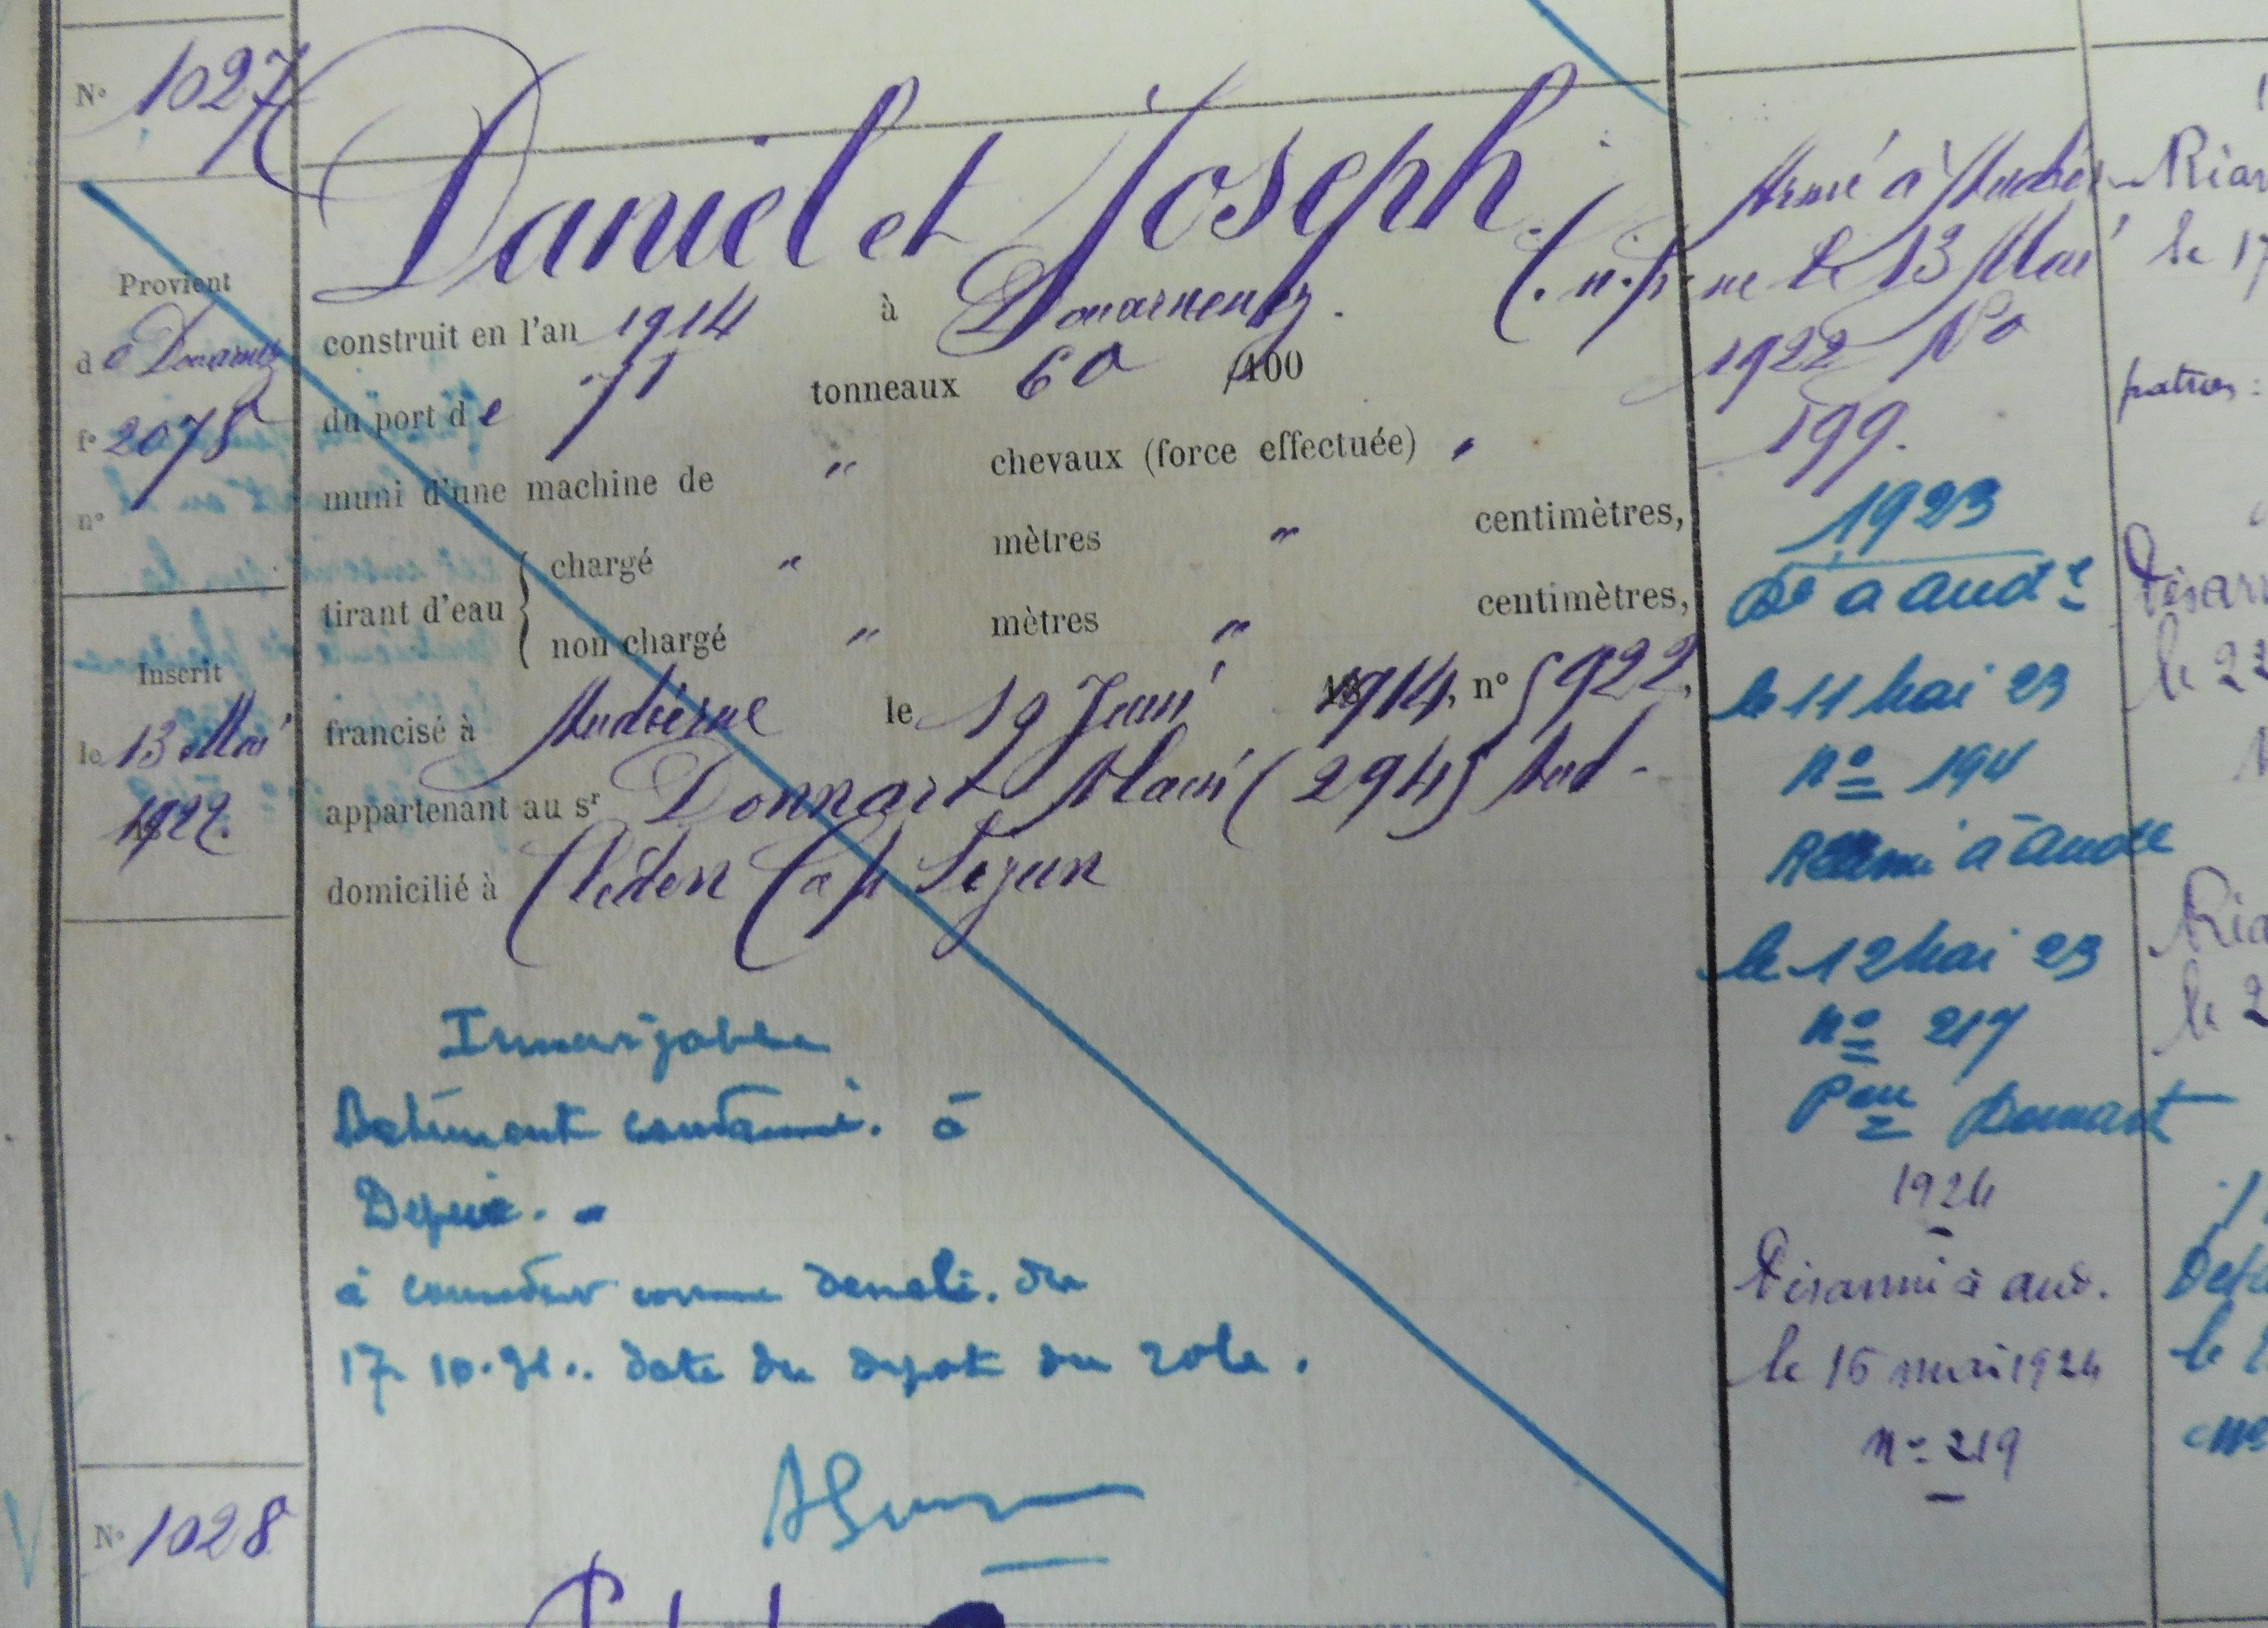 N° 1027
Daniel et Joseph.
Provient
d e Douarnez
f° 2078
n°
construit en l'an 1914 à Douarnenez.
du port de 71 tonneaux 60 /100
muni d'une machine de " chevaux (force effectuée) "
tirant d'eau { chargé " mètres " centimètres,
non chargé " mètres " centimètres,
francisé à Audierne le 19 Juin 1914, n° 5922,
appartenant au sr Donnart Alain (294) Aud-
domicilié à Cléden Cap Sizun
Inscrit
le 13 Mai
1922.
Innavigable
Batiment condamné. à
à comme demoli. du
17. 10. date du depot du role.
N° 1028
Armé à Audier-
ne le 13 Mai
1922 N°
199.
1923
Dé à Aud e
le 11 Mai 23
n° 194
Réarmé à Aude
le 12 Mai 23
n° 217
Pon Donnart
1924
Désarmé à Aud.
le 15 mai 1924
n° 219
Réar
le 17
patron:
Désar
le 22
Réa
le 2
le